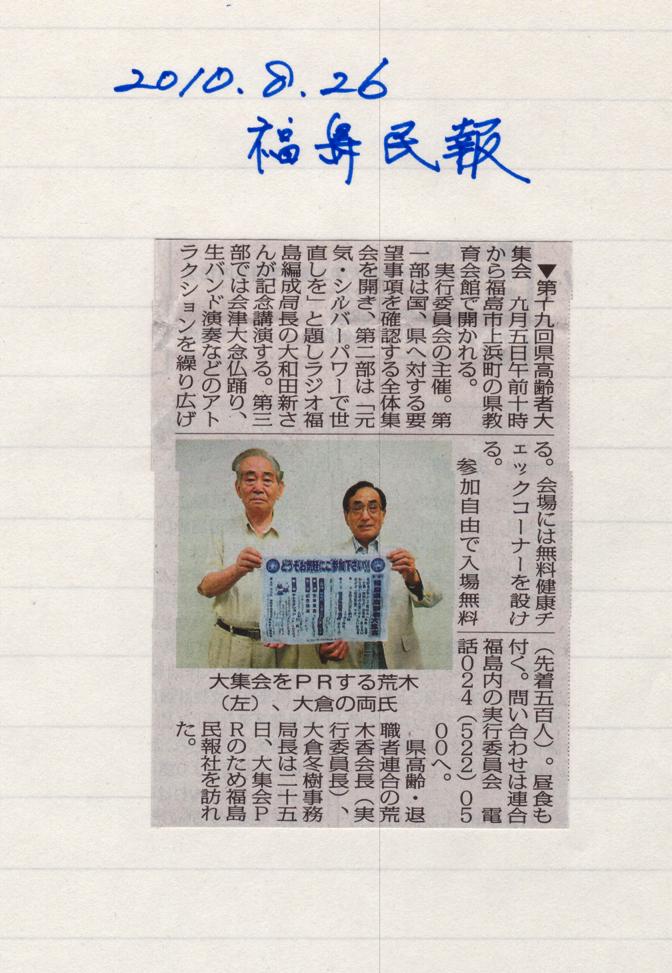 2010.8.26
福島民報
▼第十九回県高齢者大
集会　九月五日午前十時
から福島市上浜町の県教
育会館で開かれる。
　実行委員会の主催。第
一部は国、県へ対する要
望事項を確認する全体集
会を開き、第二部は「元
気・シルバーパワーで世
直しを」と題しラジオ福
島編成局長の大和田新さ
んが記念講演する。第三
部では会津大念仏踊り、
生バンド演奏などのアト
ラクションを繰り広げ
る。会場には無料健康チ
ェックコーナーを設け
る。
　参加自由で入場無料
（先着五百人）。昼食も
付く。問い合わせは連合
福島内の実行委員会　電
話０２４（５２２）０５
００へ。
　県高齢・退
職者連合の荒
木香会長（実
行委員長）、
大倉冬樹事務
局長は二十五
日、大集会Ｐ
Ｒのため福島
民報社を訪れ
た。
どうぞお気軽にご参加下さい!!
大集会をＰＲする荒木
（左）、大倉の両氏